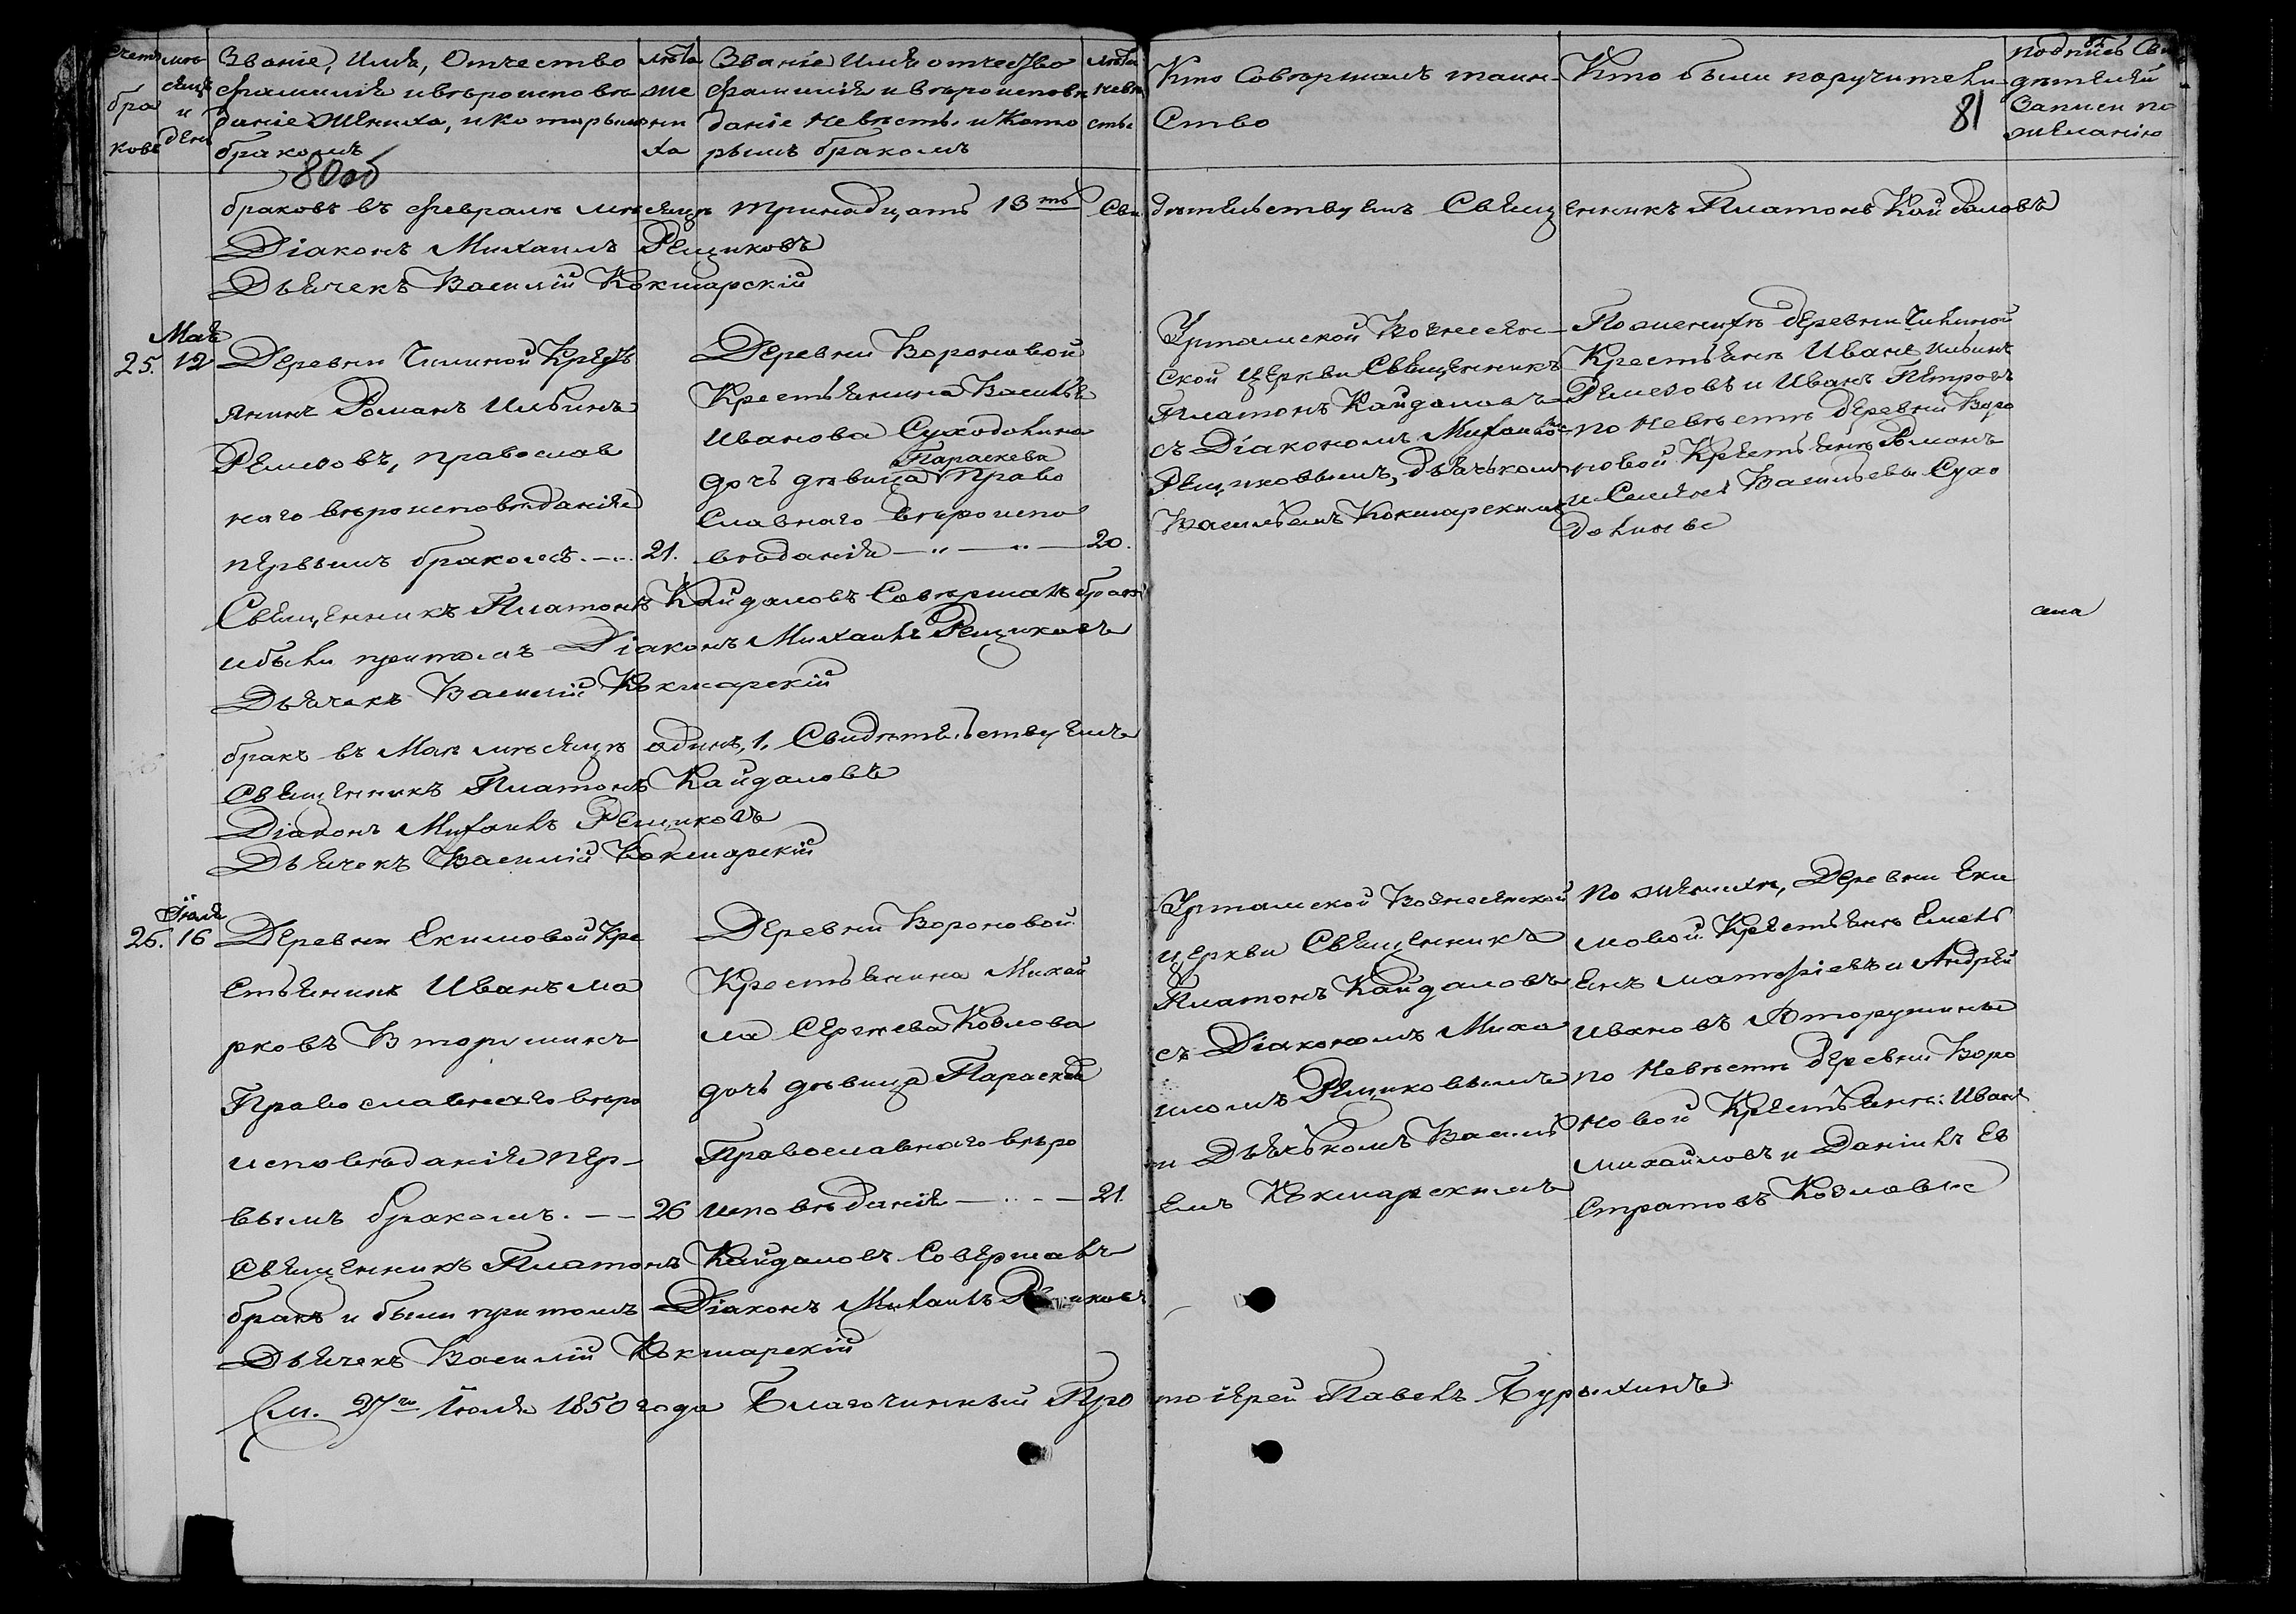 Счетъ бра ковъ
мѣ сяцъ и день
Званіе, Имя, Отчество
фамилія и вѣроисповѣ
даніе жениха, и которымъ
бракомъ
лѣта же ни ха
Званіе Имя отчество
фамилія и вѣроисповѣ
даніе невѣсты и Кото
рымъ бракомъ
лѣта невѣ сты
Кто Совершалъ таин-
ство
Кто были поручители
подпись Сви
дѣтелей
Записи по
желанію
80об
81
браковъ въ февралѣ мѣсяцѣ тринадцать 13ть Сви дѣтельствуемъ Священникъ Платонъ Кайдаловъ
Діаконъ Михаилъ Рещиковъ
Дьячекъ Василій Кокшарскій
25.
Маія
12
Деревни Чилиной Кресть
янинъ Романъ Ильинъ
Ремезовъ, православ
наго вѣроисповѣданія
первымъ бракомъ.
21.
Деревни Вороновой
Крестьянина Василья
Иванова Суходолина
Параскева
дочь дѣвица Право
славнаго вѣроиспо
вѣданія
20.
Уртамской Вознесен-
ской Церкви Священникъ
Платонъ Кайдаловъ
съ Діакономъ Михаиломъ
Рещиковымъ, дьячькомъ
Васильемъ Кокшарскимъ
По женихѣ деревни Чилиной
Крестьяня Иванъ Ильинъ
Ремезовъ и Иванъ Петровъ
по невѣстѣ деревни Воро
новой Крестьяня Романъ
и Семенъ Васильевы Сухо
долины
Священникъ Платонъ Кайдаловъ Совершалъ бракъ
и были притомъ Діаконъ Михаилъ Рещиковъ
Дьячекъ Василій Кокшарскій
бракъ въ Маѣ мѣсяцѣ одинъ, 1. Свидѣтельствуемъ
Священникъ Платонъ Кайдаловъ
Діаконъ Михаилъ Рещиковъ
Дьячекъ Василій Кокшарскій
26.
Іюля
16
Деревни Екимовой Кре
стьянинъ Иванъ Ма
рковъ Вторушинъ
Православнаго вѣро
исповѣданія пер-
вымъ бракомъ.
26
Деревни Вороновой
Крестьянина Михаи
ла Сергѣева Козлова
дочь дѣвица Параскева
Православнаго вѣро
исповѣданія
21.
Уртамской Вознесенской
церкви Священникъ
Платонъ Кайдаловъ
съ Діакономъ Миха
иломъ Рещиковымъ
и Дьячькомъ Василь
емъ Кокшарскимъ
по женихѣ, Деревни Еки
мовой Крестьяня Емель
янъ матфіевъ и Андрей
Ивановъ Вторушины
по Невѣстѣ деревни Воро
новой Крестьяня: Иванъ
михайловъ и Даніилъ Ев
стратовъ Козловы
Священникъ Платонъ Кайдаловъ Совершалъ
бракъ и были притомъ Діаконъ Михаилъ Рещиковъ
Дьячекъ Василій Кокшарскій
См. 27го Іюля 1850 года Благочинный Про тоіерей Павелъ Бурыхинъ